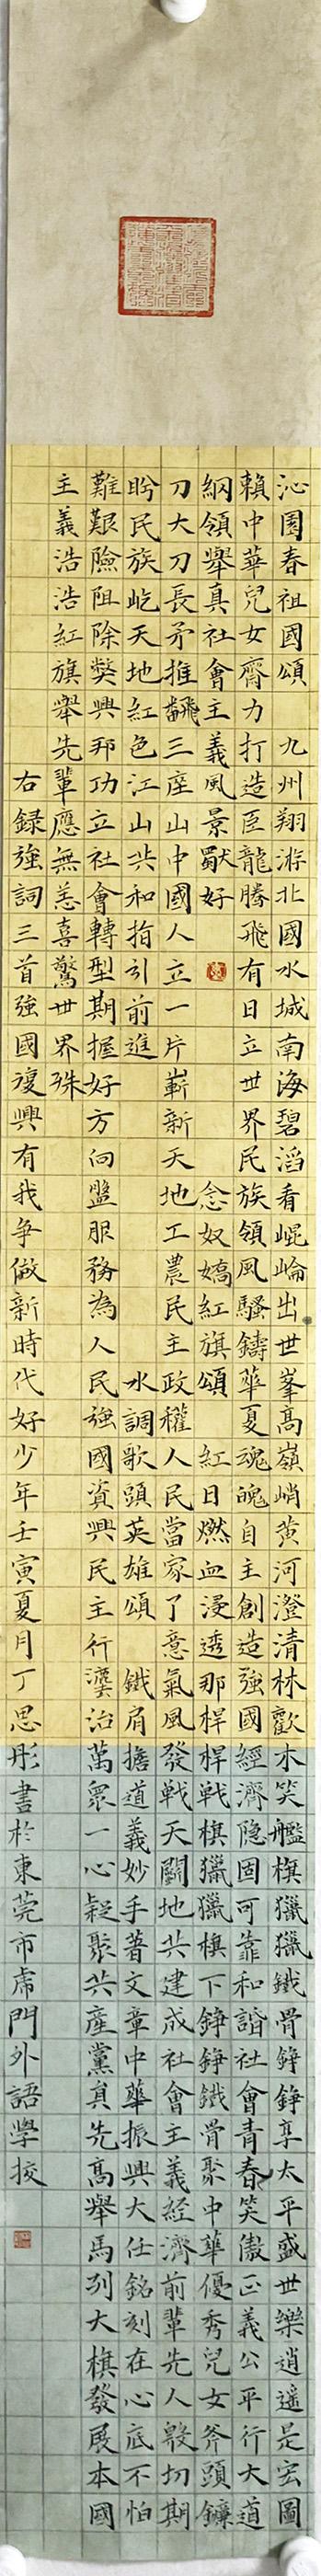 沁園春祖國頌　九州翔游北國水城南海碧滔看崐崘出世峯髙嶺峭黄河澄清林歡木笑艦旗獵獵鐵骨錚錚享太平盛世樂逍遥是宏圖
賴中華兒女齊力打造巨龍騰飛有日立世界民族領風騷鑄華夏魂魄自主創造強國經濟隐固可靠和諧社會青春笑傲正義公平行大道
綱領舉真社會主義風景獣好　念奴嬌紅旗頌　紅日燃血浸透那桿桿戰旗獵獵旗下錚錚鐵骨聚中華優秀兒女斧頭鐮
刀大刀長矛推飜三座山中國人立一片嶄新天地工農民主政權人民當家了意氣風發戰天鬭地共建成社會主義経濟前輩先人殷切期
盻民族屹天地紅色江山共和指引前進　水調歌頭英雄頌　鐵肩擔道義妙手著文章中華振興大任銘刻在心底不怕
難艱險阻除獘興邦功立社會轉型期握好方向盤服務為人民強國資興民主行灋治萬衆一心凝聚共產黨員先髙舉馬列大旗發展本國
主義浩浩紅旗舉先輩應無恙喜驚世界殊
右録強詞三首強國復興有我争做新時代好少年壬寅夏月丁思彤書於東莞市虎門外語學挍